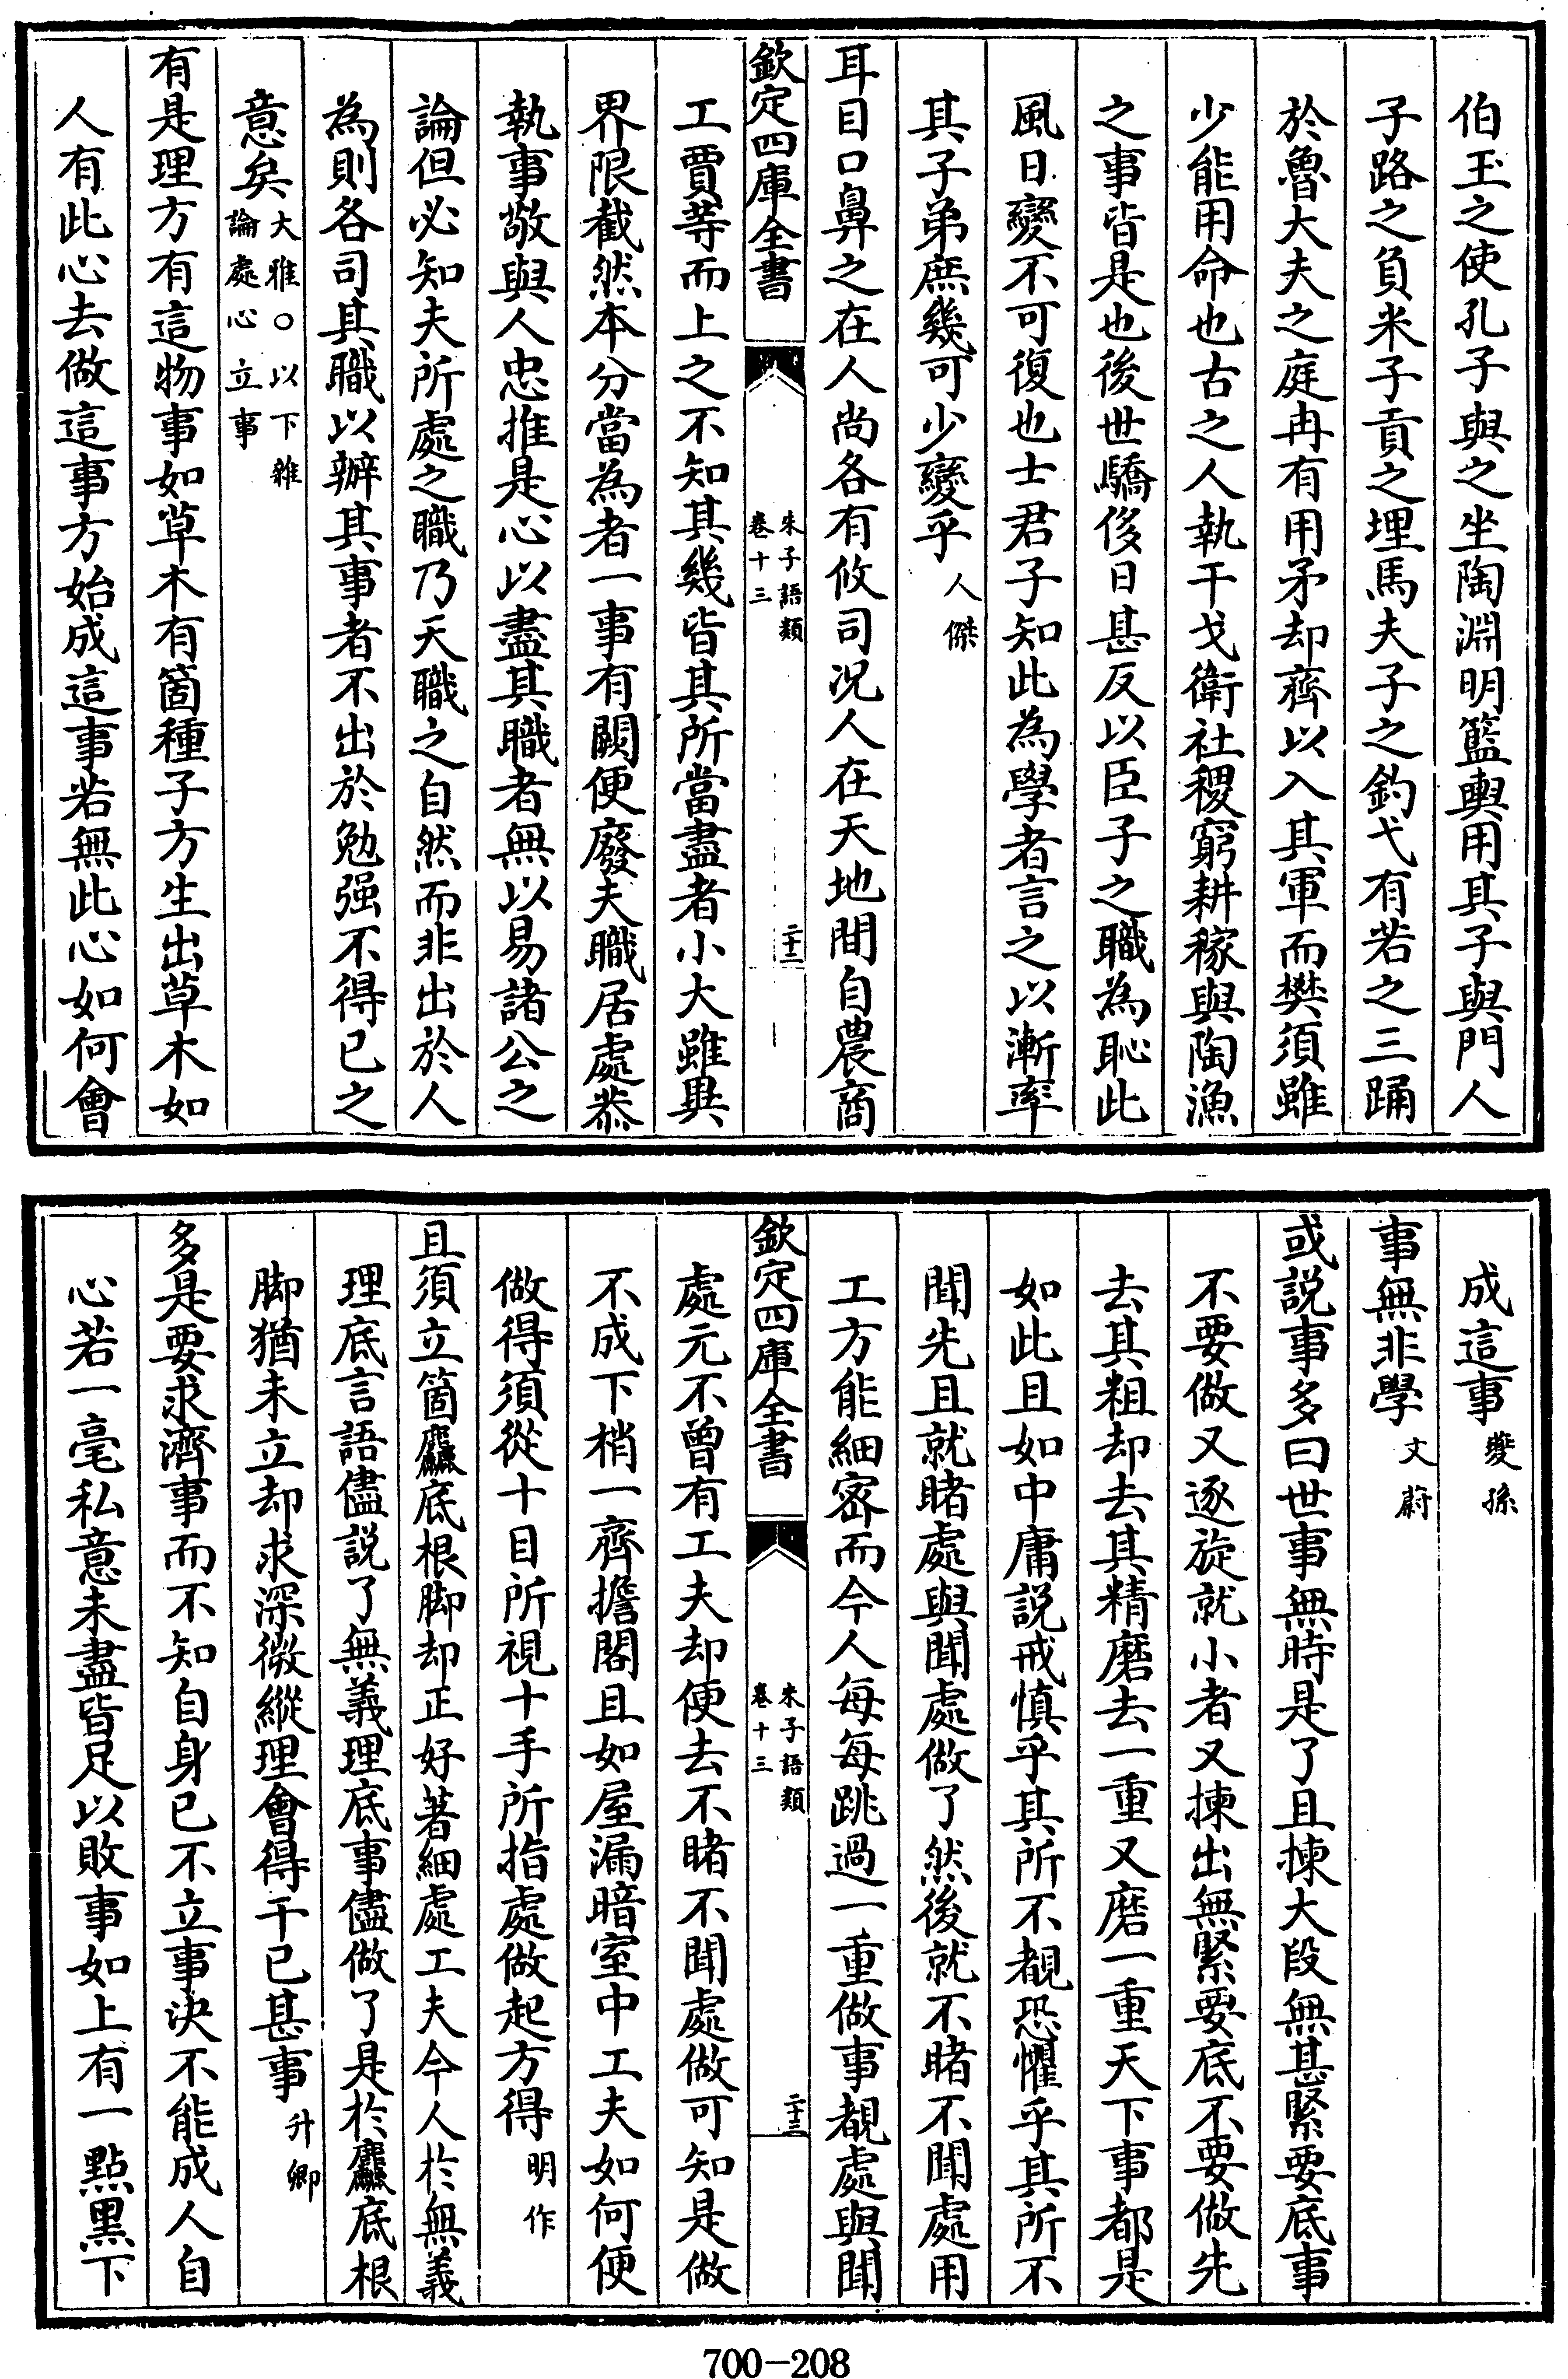 伯玉之使孔子與之坐陶淵明籃輿用其子與門人
子路之負米子貢之埋馬夫子之釣弋有若之三踊
於魯大夫之庭冉有用矛却齊以入其軍而樊須雖
少能用命也古之人執干戈衛社稷窮耕稼與陶漁
之事皆是也後世驕侈日甚反以臣子之職為恥此
風日變不可復也士君子知此為學者言之以漸率
其子弟庶幾可少變乎人傑
耳目口鼻之在人尚各有攸司況人在天地間自農商
欽定四庫全書
朱子語類
卷十三
二十二
工賈等而上之不知其幾皆其所當盡者小大雖異
界限截然本分當為者一事有闕便廢夫職居處恭
執事敬與人忠推是心以盡其職者無以易諸公之
論但必知夫所處之職乃天職之自然而非出於人
為則各司其職以辦其事者不出於勉强不得已之
意矣大雅○以下雜
論處心立事
有是理方有這物事如草木有箇種子方生出草木如
人有此心去做這事方始成這事若無此心如何會
成這事夔孫
事無非學文蔚
或説事多曰世事無時是了且揀大段無甚緊要底事
不要做又逐旋就小者又揀出無緊要底不要做先
去其粗却去其精磨去一重又磨一重天下事都是
如此且如中庸説戒慎乎其所不覩恐懼乎其所不
聞先且就睹處與聞處做了然後就不睹不聞處用
工方能細密而今人每每跳過一重做事覩處與聞
欽定四庫全書
朱子語類
卷十三
二十三
處元不曾有工夫却便去不睹不聞處做可知是做
不成下梢一齊擔閣且如屋漏暗室中工夫如何便
做得須從十目所視十手所指處做起方得明作
且須立箇麤底根脚却正好著細處工夫今人於無義
理底言語儘説了無義理底事儘做了是於麤底根
脚猶未立却求深微縱理會得干已甚事升卿
多是要求濟事而不知自身已不立事决不能成人自
心若一毫私意未盡皆足以敗事如上有一點黑下
700-208